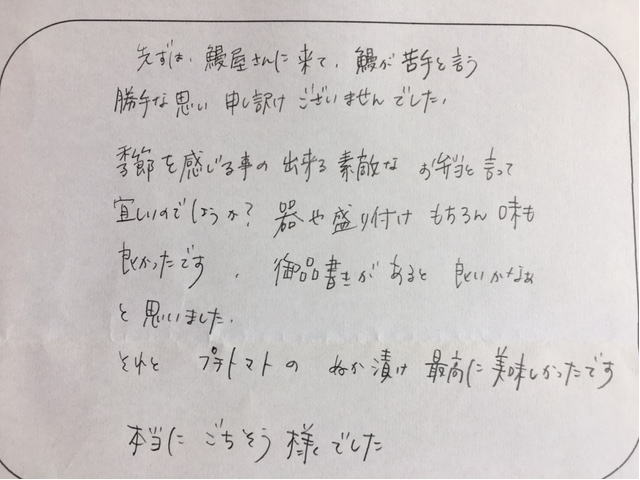 先ずは、鰻屋さんに来て、鰻が苦手と言う
勝手な思い 申し訳けございませんでした。
季節を感じる事の出来る素敵な お弁当と言って
宜しいのでしょうか? 器や盛り付け もちろん味も
良かったです 、 御品書きがあると 良いかなぁ
と思いました。
それと プチトマトの ぬか漬け 最高に美味しかったです
本当に ごちそう様でした